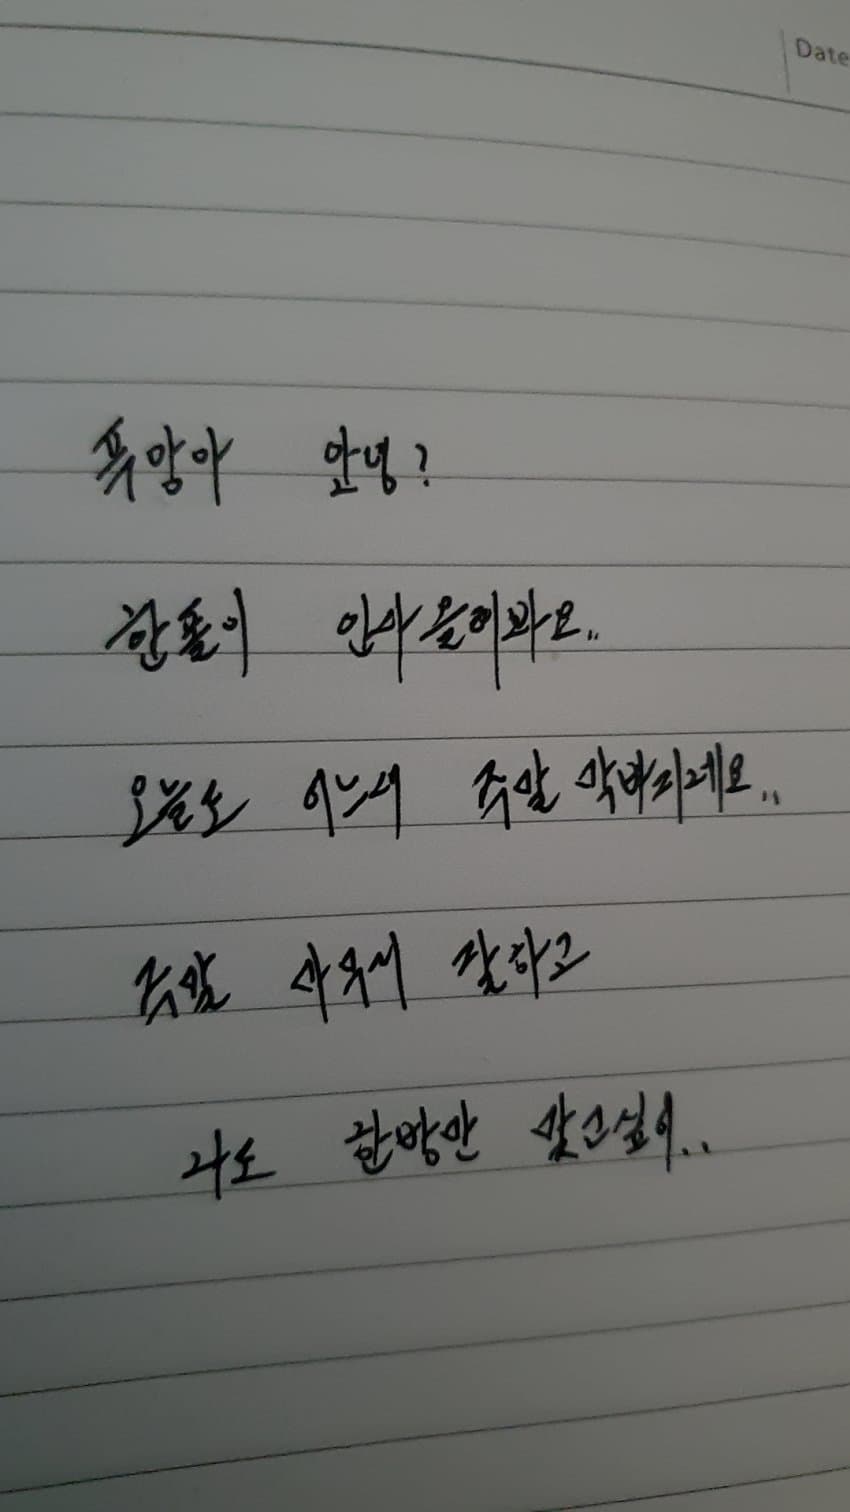 Date
폭앙아 안녕?
한폴이 인사올이와요..
오늘도 어느새 주말 막바지네요..
주말 마무리 잘하고
나도 한방만 맞고싶어..